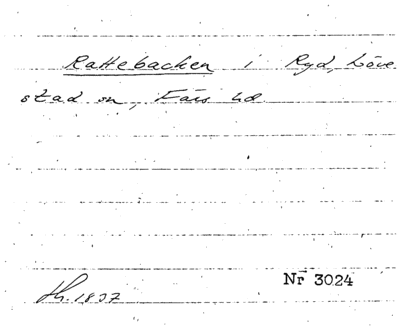 Rattebacken i Ryd, Löve
stad sn, Färs hd
Nr 3024